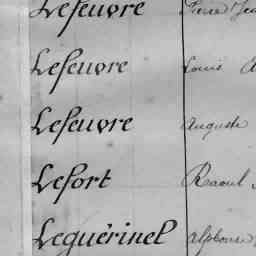 Lefeuvre Pierre
Lefeuvre Louis
Lefeuvre Auguste
Lefort Raoul
Leguérinel Alphonse